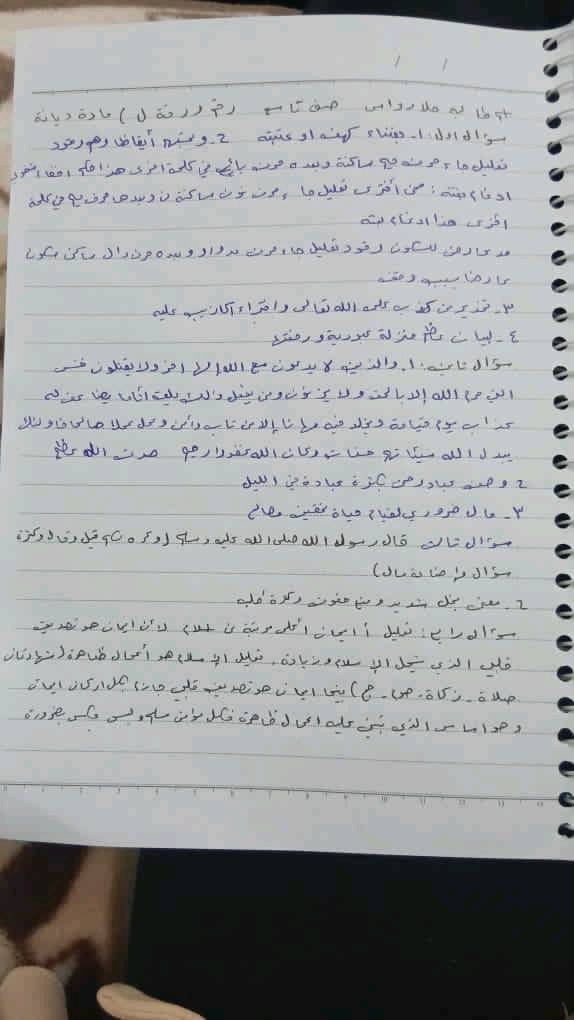 صف تاسع رقم ورقة ل ) مادة ديانة
سؤال اول : 1. فناء كهف او عتبته 2. وتحسبهم أيقاظا وهم رقود
تعليل جاء حرف ميم ساكنة وبعده حرف باء في كلمة اخرى هذا
ادغام بغنة : تعليل جاء حرف نون ساكنة ن وبعدها حرف في كلمة
اخرى هذا ادغام بغنة
مد عارض للسكون رقود تعليل جاء حرف مد واو وبعده حرف دال ساكن سكون
عارضا بسبب وقف
٣- تحذير من كذب على الله تعالى وافتراء اكاذيب عليه
٤ - لبيان عظم منزلة عبودية ورفعتها
سؤال ثاني : 1. والذين لا يدعون مع الله الها اخر ولا يقتلون نفس
التي حرم الله إلا بالحق ولا يزنون ومن يفعل ذالك يلق أثاما يضاعف له
عذاب يوم قيامة ويخلد فيه مهانا إلا من تاب وآمن وعمل عملا صالحا فاولئك
يبدل الله سيئاتهم حسنات وكان الله غفورا رحيم صدق الله عظيم
2 وصف عباد رحمن بكثرة عبادة في الليل
٣- مال ضروري لقيام حياة تحقيق مصالح
سؤال ثالث قال رسول الله صلى الله عليه وسلم ( وكره قيل وقال وكثرة
سؤال وإضاعة مال )
2. معنى
سؤال رابع : تعليل أ ايمان أعلى مرتبة من اسلام لأن ايمان هو تصديق
قلبي الذي يشمل الإسلام وزيادة . تعليل الإسلام هو أعمال ظاهرة ( شهادتان
صلاة - زكاة - صوم - حج ) بينما ايمان هو تصديق قلبي جازم بكل اركان ايمان
وهو اساس الذي تبنى عليه اعمال ظاهرة فكل مؤمن مسلم وليس عكس بضرورة